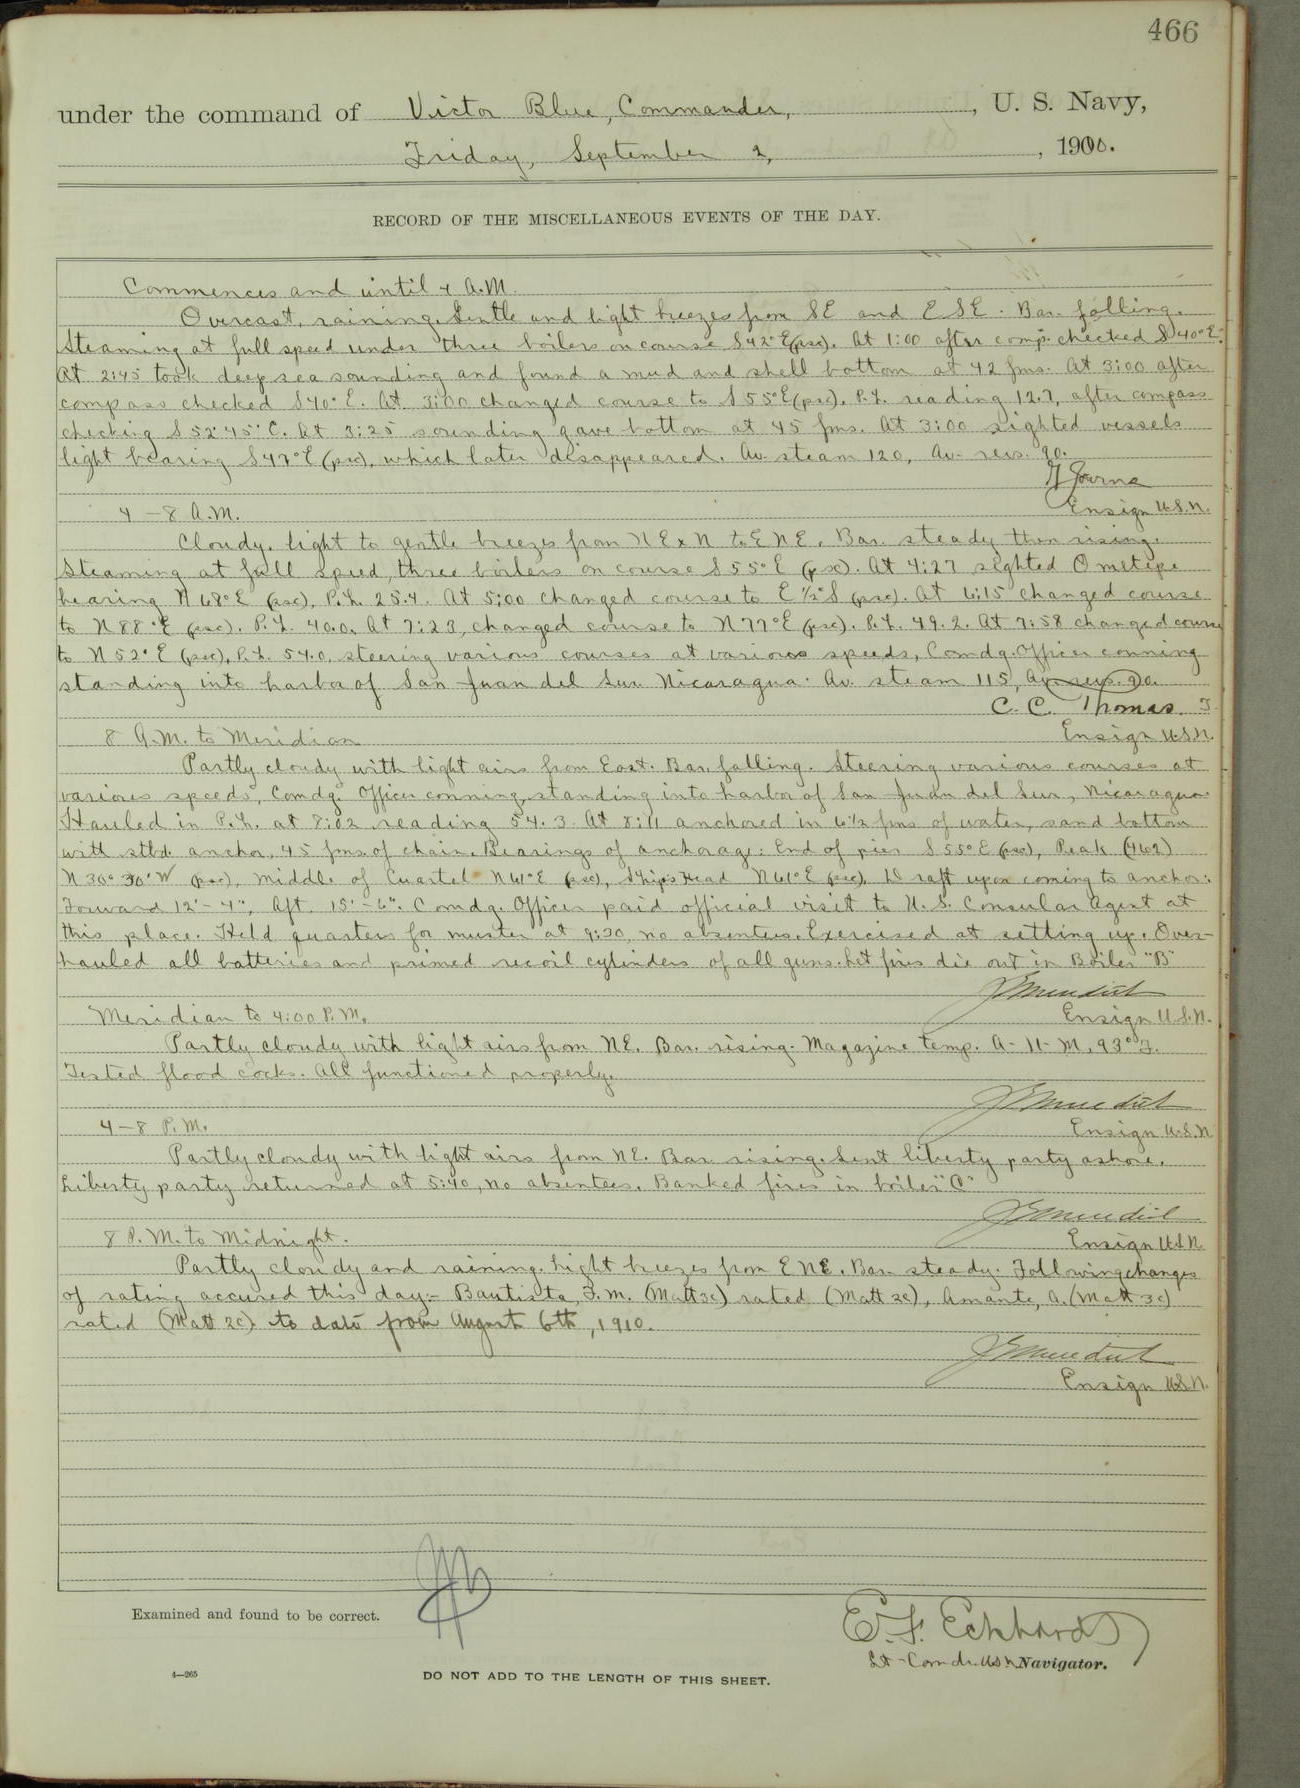 466
under the command of Victor Blue, Commander, , U. S. Navy,
Friday, September 2, , 1910.
RECORD OF THE MISCELLANEOUS EVENTS OF THE DAY.
Commences and until 4 A.M.
Overcast, raining. Gentle and light breezes from SE and ESE. Bar. falling.
Steaming at full speed under three boilers on course S 42° E (psc). At 1:00 after comp. checked S 40° E.
At 2:45 took deep sea sounding and found a mud and shell bottom at 42 fms. At 3:00 after
compass checked S 40° E. At 3:00 changed course to S 55° E (psc). P.L. reading 12.7, after compass
checking S 52° 45' E. At 3:25 sounding gave bottom at 45 fms. At 3:00 sighted vessels
light bearing S 47° E (psc), which later disappeared. Av. steam 120, Av. revs. 90.
Ensign U.S.N.
4 – 8 A.M.
Cloudy. Light to gentle breezes from NExN to ENE. Bar. steady then rising.
Steaming at full speed, three boilers on course S 55° E (psc). At 4:27 sighted Ometepe
bearing N 68° E (psc), P.L. 25.4. At 5:00 changed course to E ½° S (psc). At 6:15 changed course
to N 88° E (psc). P.L. 40.0. At 7:23, changed course to N 77° E (psc). P.L. 49.2. At 7:58 changed course
to N 52° E (psc), P.L. 54.0, steering various courses at various speeds, Comdg. Officer conning
standing into harbor of San Juan del Sur Nicaragua. Av. steam 115, Av. revs. 90.
C. C. Thomas
Ensign U.S.N.
8 A.M. to Meridian
Partly cloudy with light airs from East. Bar. falling. Steering various courses at
various speeds, Comdg. Officer conning, standing into harbor of San Juan del Sur, Nicaragua.
Hauled in P.L. at 8:02 reading 54.3. At 8:11 anchored in 6½ fms of water, sand bottom
with stbd. anchor, 45 fms. of chain. Bearings of anchorage: End of pier S 55° E (psc), Peak (462)
N 30° 30' W (psc), Middle of Cuartel N 61° E (psc), Ship's Head N 61° E (psc). Draft upon coming to anchor:
Forward 12'–4", Aft. 15'–6". Comdg. Officer paid official visit to U. S. Consular Agent at
this place. Held quarters for muster at 9:30, no absentees. Exercised at setting up. Over-
hauled all batteries and primed recoil cylinders of all guns. Let fires die out in Boiler "B"
Ensign U.S.N.
Meridian to 4:00 P.M.
Partly cloudy with light airs from NE. Bar. rising. Magazine temp. A-11-M, 93° F.
Tested flood cocks. All functioned properly.
Ensign U.S.N.
4 – 8 P.M.
Partly cloudy with light airs from NE. Bar. rising. Sent liberty party ashore.
Liberty party returned at 5:40, no absentees. Banked fires in boiler "C"
Ensign U.S.N.
8 P.M. to Midnight.
Partly cloudy and raining. Light breezes from ENE. Bar. steady. Following changes
of rating accured this day:- Bautista, F.M. (Matt 3c) rated (Matt 2c), Amante, A. (Matt 3c)
rated (Matt 2c) to date from August 6th, 1910.
Ensign U.S.N.
Examined and found to be correct.
Lt-Comdr. USN Navigator.
4—265
DO NOT ADD TO THE LENGTH OF THIS SHEET.